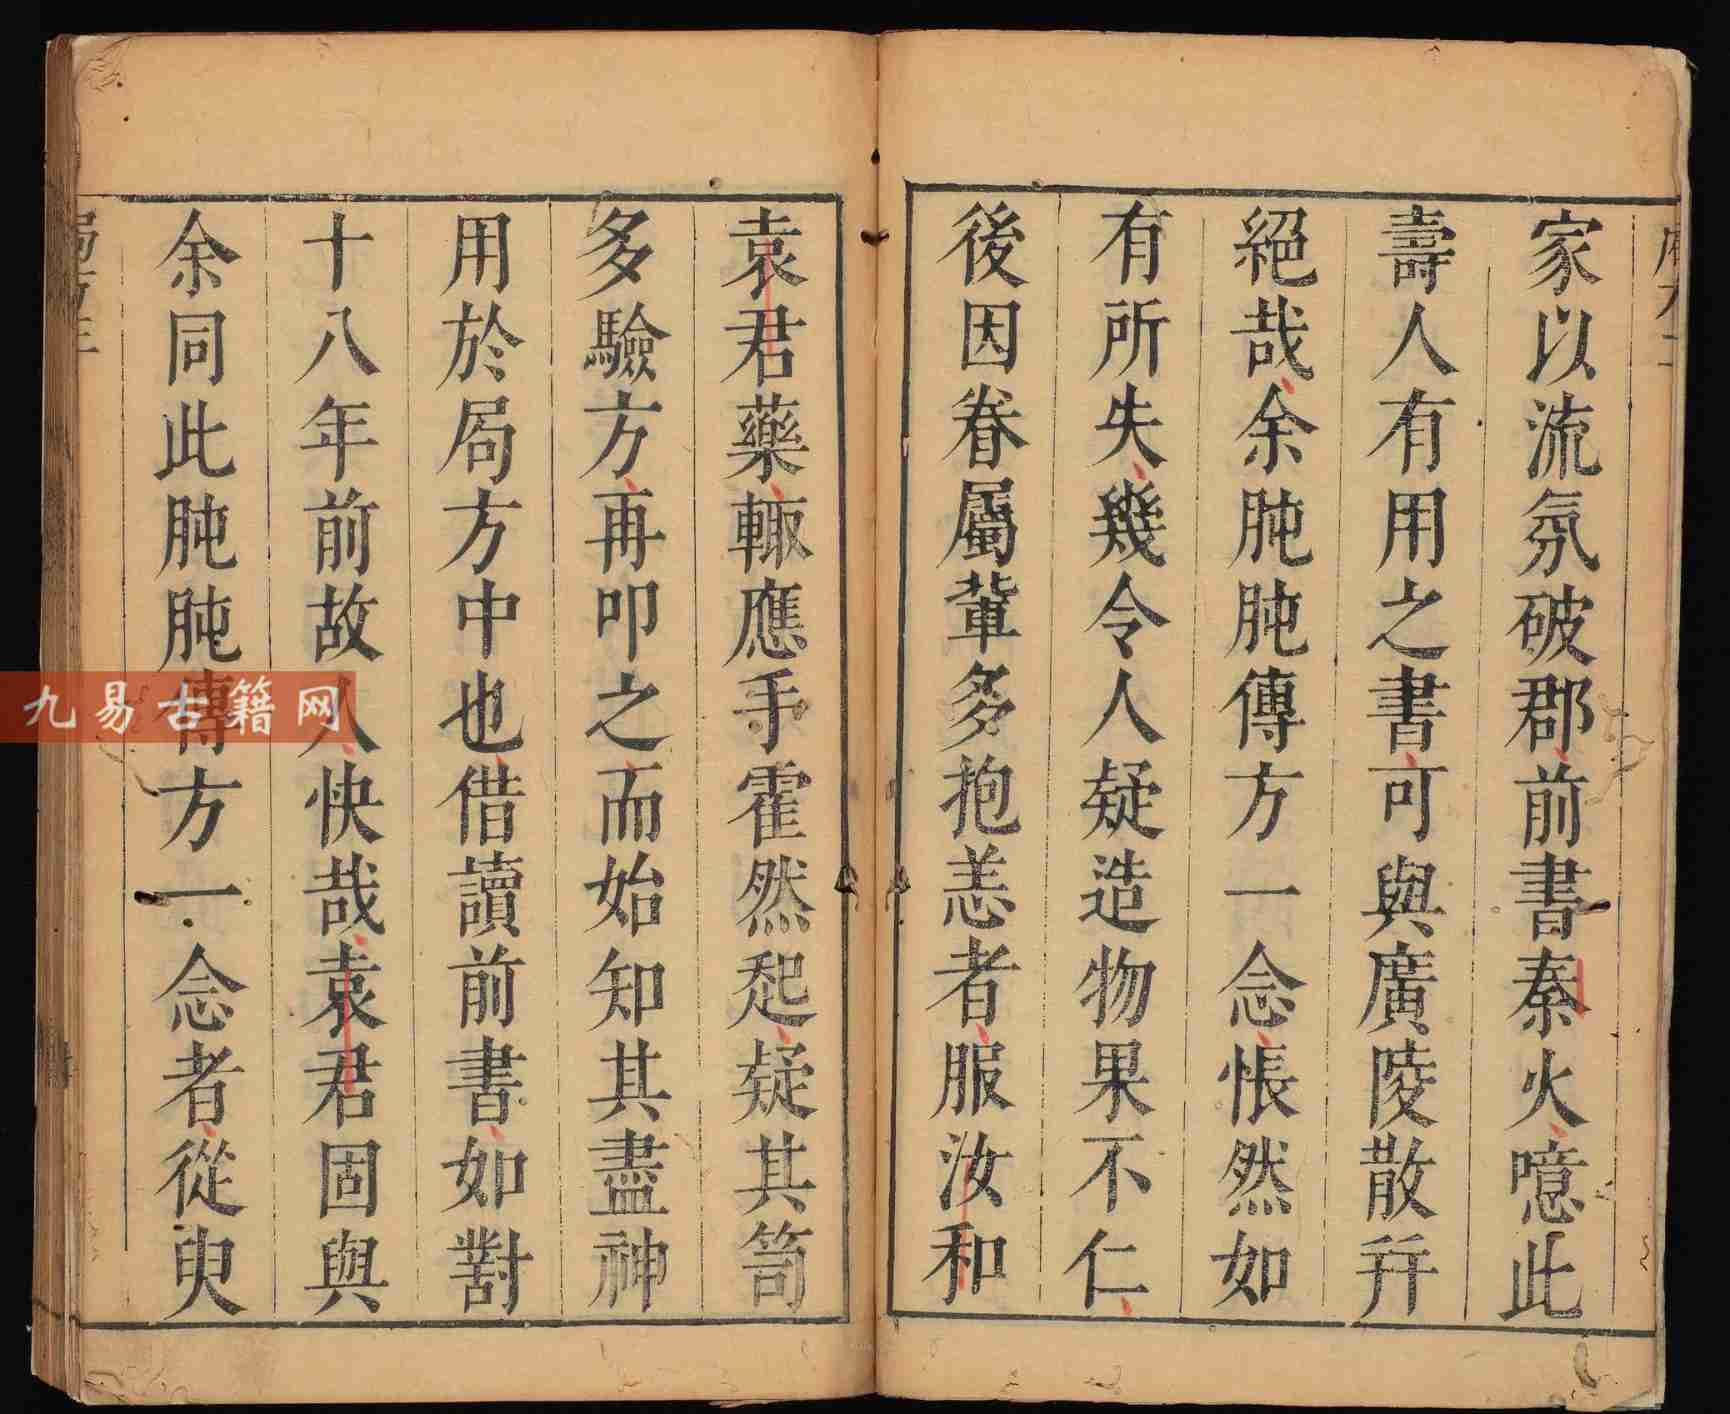 家以流氛破郡前書秦火噫此
壽人有用之書可與廣陵散并
絕哉余肫肫傳方一念悵然如
有所失幾令人疑造物果不仁
後因眷屬輩多抱恙者服汝和
袁君藥輙應手霍然起疑其笥
多驗方再叩之而始知其盡神
用於局方中也借讀前書如對
十八年前故人快哉袁君固與
余同此肫肫傳方一念者從臾
九易古籍网